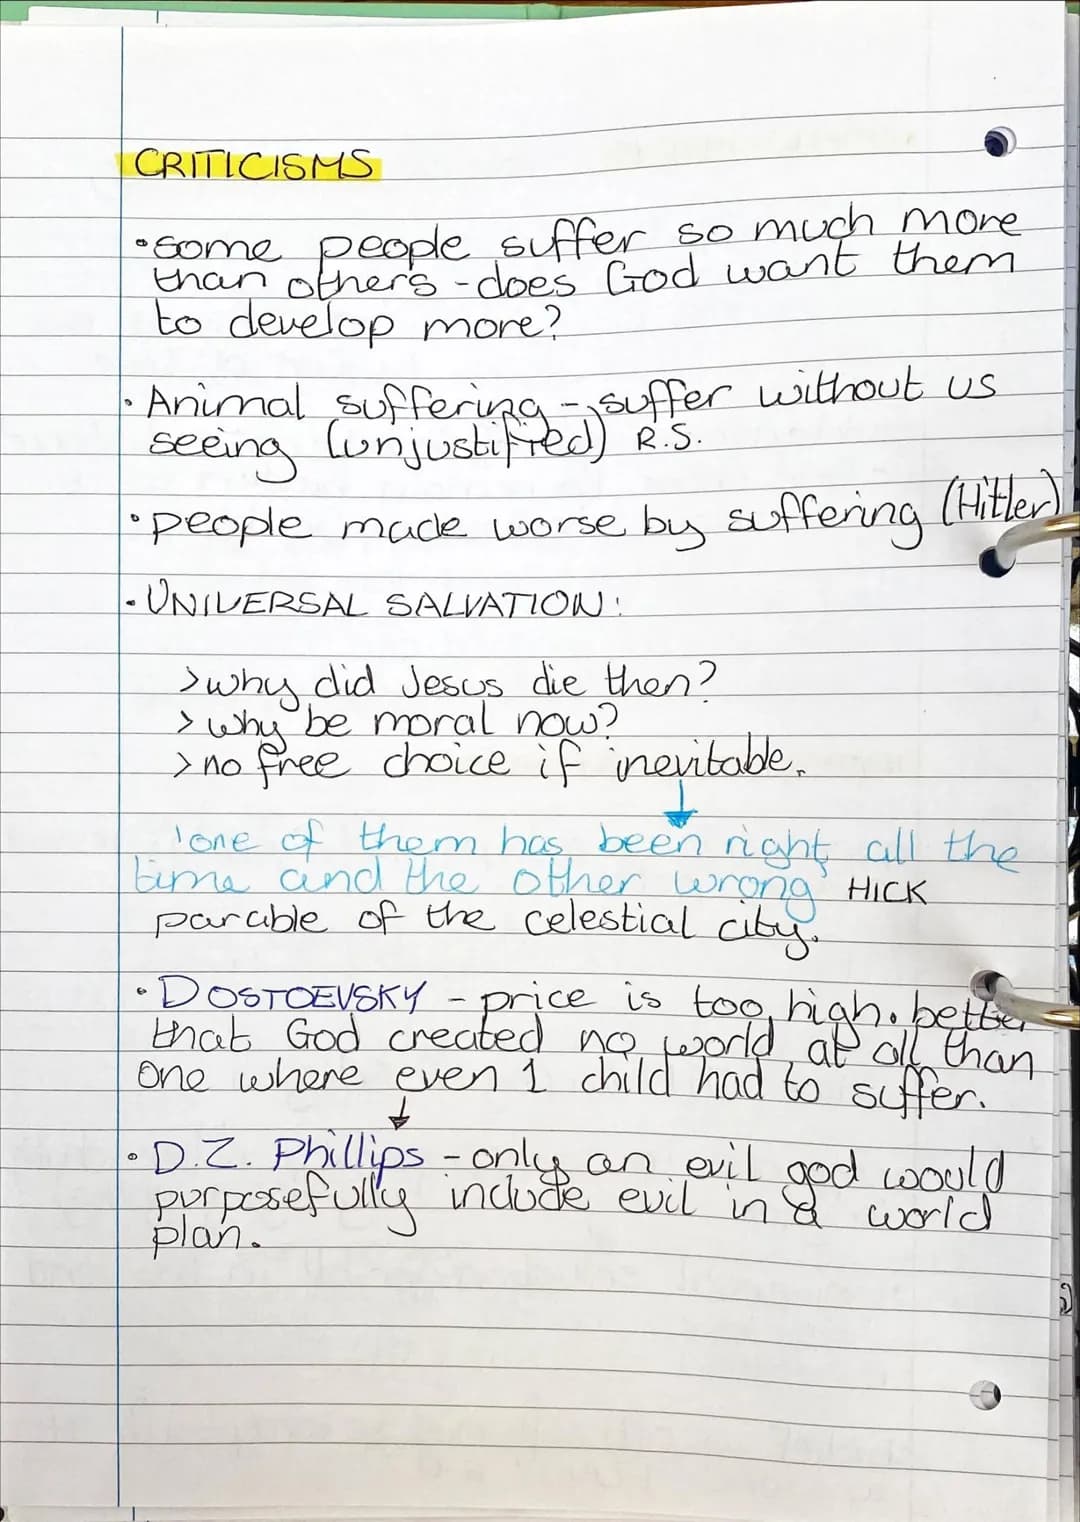 CRITICISMS
• some people suffer so much more
than others - does God want them
to develop more?
• Animal suffering - suffer without us
seeing (unjustified) R.S.
• people made worse by suffering (Hitler)
• UNIVERSAL SALVATION:
> why did Jesus die then?
> why be moral now?
> no free choice if inevitable.
'one of them has been right all the
time and the other wrong' HICK
parable of the celestial city.
• DOSTOEVSKY - price is too high. better
that God created no world at all than
one where even 1 child had to suffer.
• D.Z. Phillips - only an evil god would
purposefully include evil in a world
plan.